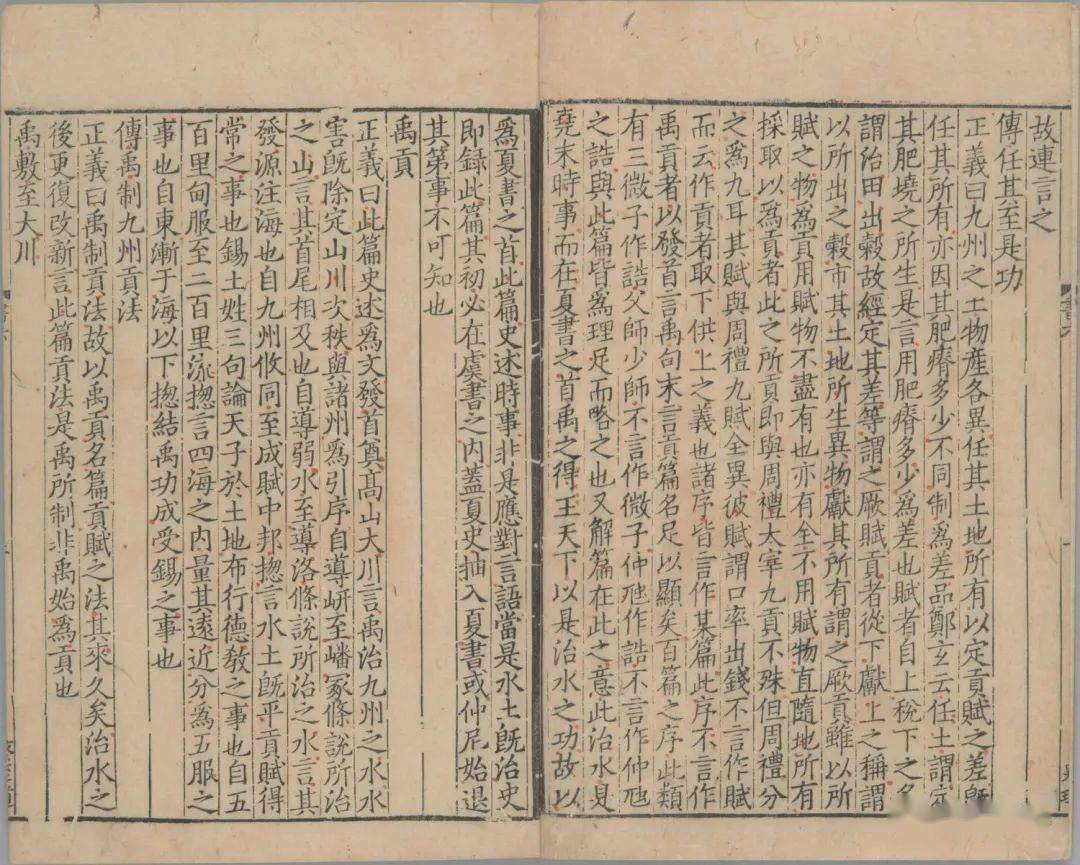 故連言之
傳任其至是功
正義曰九州之土物產各異任其土地所有以定貢賦之差旣
任其所有亦因其肥瘠多少不同制爲差品鄭玄云任土謂定
其肥墝之所生是言用肥瘠多少爲差也賦者自上稅下之名
謂治田出穀故經定其差等謂之厥賦貢者從下獻上之稱謂
以所出之穀市其土地所生異物獻其所有謂之厥貢雖以所
賦之物爲貢用賦物不盡有也亦有全不用賦物直隨地所有
採取以爲貢者此之所貢即與周禮太宰九貢不殊但周禮分
之爲九耳其賦與周禮九賦全異彼賦謂口率出錢不言作賦
而云作貢者取下供上之義也諸序皆言作某篇此序不言作
禹貢者以發首言禹句末言貢篇名足以顯矣百篇之序此類
有三微子作誥父師少師不言作微子仲虺作誥不言作仲虺
之誥與此篇皆爲理足而略之也又解篇在此之意此治水是
堯末時事而在夏書之首禹之得王天下以是治水之功故以
爲夏書之首此篇史述時事非是應對言語當是水土旣治史
即録此篇其初必在虞書之内蓋夏史抽入夏書或仲尼始退
其第事不可知也
禹貢
正義曰此篇史述爲文發首奠高山大川言禹治九州之水水
害旣除定山川次秩與諸州爲引序自導岍至嶓冢條說所治
之山言其首尾相及也自導弱水至導洛條說所治之水言其
發源注海也自九州攸同至成賦中邦揔言水土旣平貢賦得
常之事也錫土姓三句論天子於土地布行德教之事也自五
百里甸服至二百里流揔言四海之内量其遠近分爲五服之
事也自東漸于海以下揔結禹功成受錫之事也
傳禹制九州貢法
正義曰禹制貢法故以禹貢名篇貢賦之法其來久矣治水之
後更復改新言此篇貢法是禹所制非禹始爲貢也
禹敷至大川